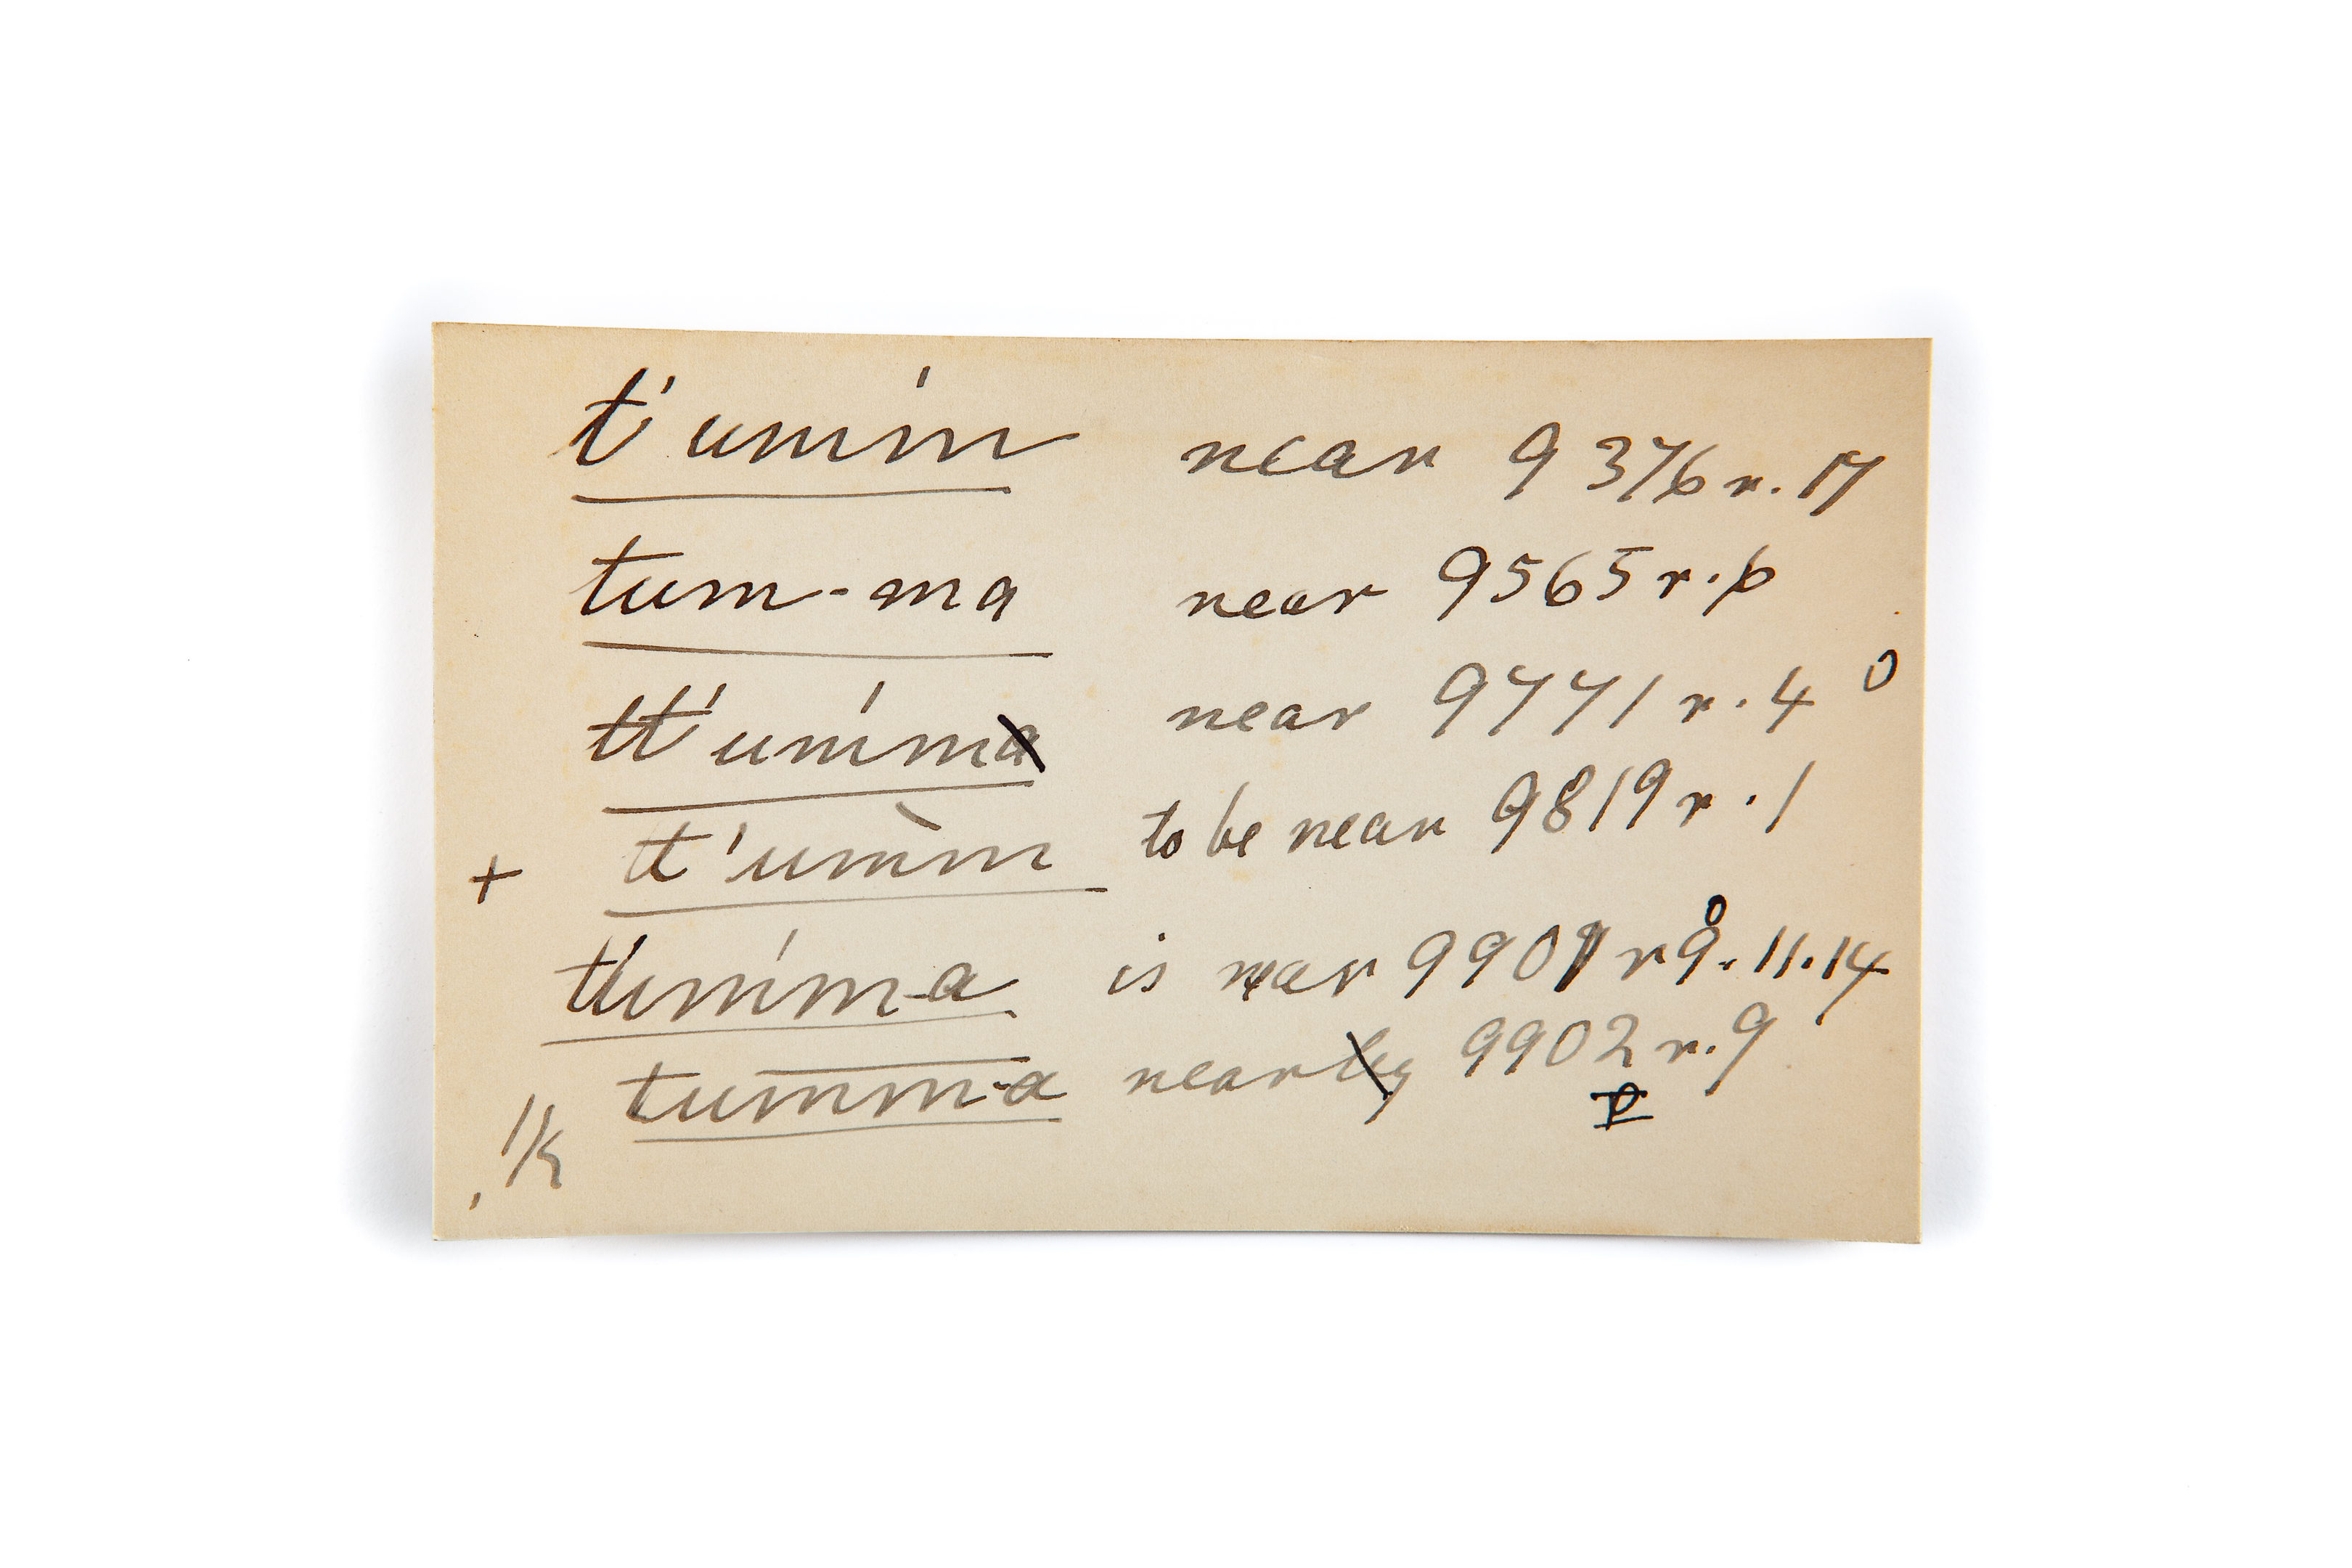 t'umḿ near 9376 r. 17
tum-ma near 9565 r. 6
tt'uḿm near 9771 r. 4 0
+ tt'um̀m to be near 9819 r. 1
t'uḿm-a is near 9901 r 9. 11. 14
tum̅m̅-a near 9902 r. 9